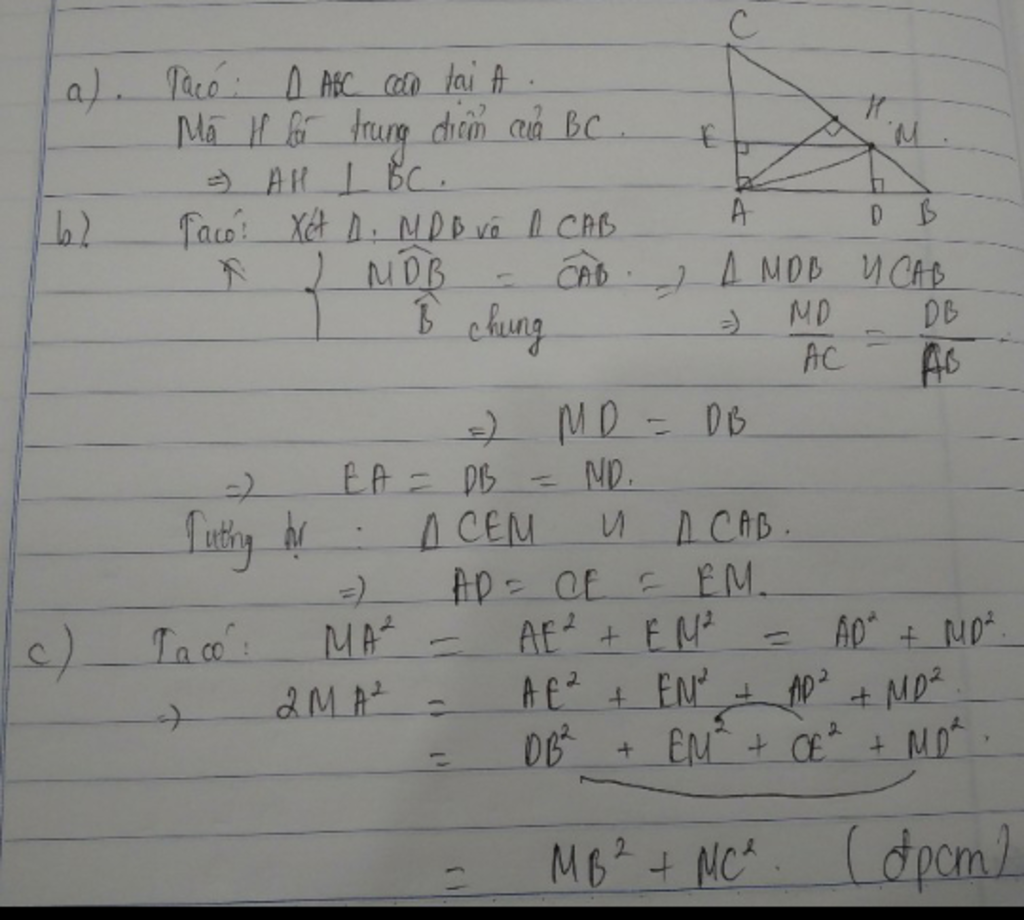 C
H
E
M
A
D
B
a). Ta có: Δ ABC cân tại A.
Mà H là trung điểm của BC.
=> AH ⊥ BC.
b) Ta có: Xét Δ: MDB và Δ CAB
{ MDB̂ = CAB̂. => Δ MDB ∽ CAB
B̂ chung => MD/AC = DB/AB
=> MD = DB
=> EA = DB = MD.
Tương tự: Δ CEM ∽ Δ CAB.
=> AD = CE = EM.
c) Ta có: MA² = AE² + EM² = AD² + MD².
=> 2MA² = AE² + EM² + AD² + MD².
= DB² + EM² + CE² + MD².
= MB² + MC². (đpcm)